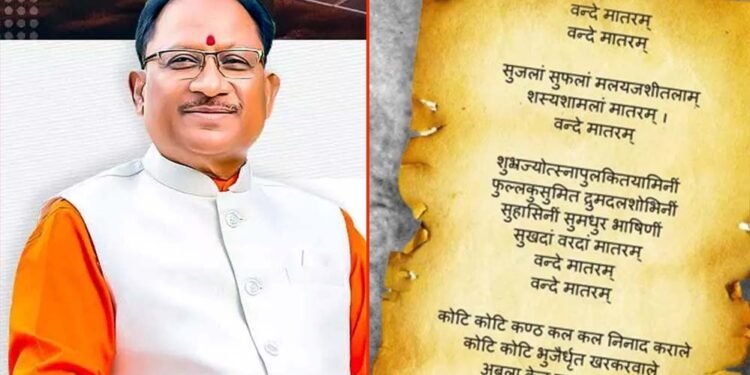 वन्दे मातरम्
वन्दे मातरम्
सुजलां सुफलां मलयजशीतलाम्
शस्यशामलां मातरम् ।
वन्दे मातरम्
शुभ्रज्योत्स्नापुलकितयामिनीं
फुल्लकुसुमित द्रुमदलशोभिनीं
सुहासिनीं सुमधुर भाषिणीं
सुखदां वरदां मातरम्
वन्दे मातरम्
वन्दे मातरम्
कोटि कोटि कण्ठ कल कल निनाद कराले
कोटि कोटि भुजैर्धृत खरकरवाले
अबला